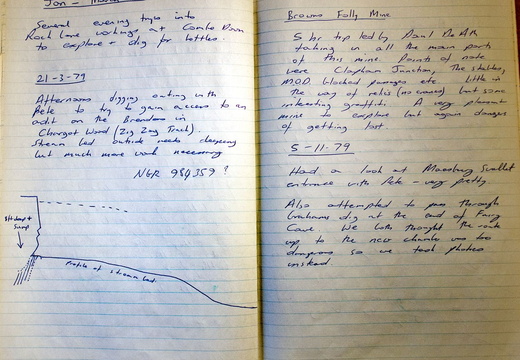 Jon -
Several evening trips into
Rock Lane workings at Combe Down
to explore + dig for bottles.
21-3-79
Afternoons digging outing with
Pete to try to gain access to an
adit on the Brendons in
Chargot Wood (Zig Zag Track).
Stream bed outside needs deepening
but much more work necessary
NGR 984359 ?
Profile of stream bed.
Browns Folly Mine
5 hr trip led by Paul
taking in all the main parts
of this mine. Points of note
were Clapham Junction, The stables,
M.O.D blocked passages etc. Little in
the way of relics (no cranes) but some
interesting graffiti. A very pleasant
mine to explore but again dangers
of getting lost.
5-11-79
Had a look at Maesbury Swallet
entrance with Pete - very pretty.
Also attempted to pass through
Grahams dig at the end of Fairy
Cave. We both thought the route
up to the new chamber was too
dangerous so we took photos
instead.